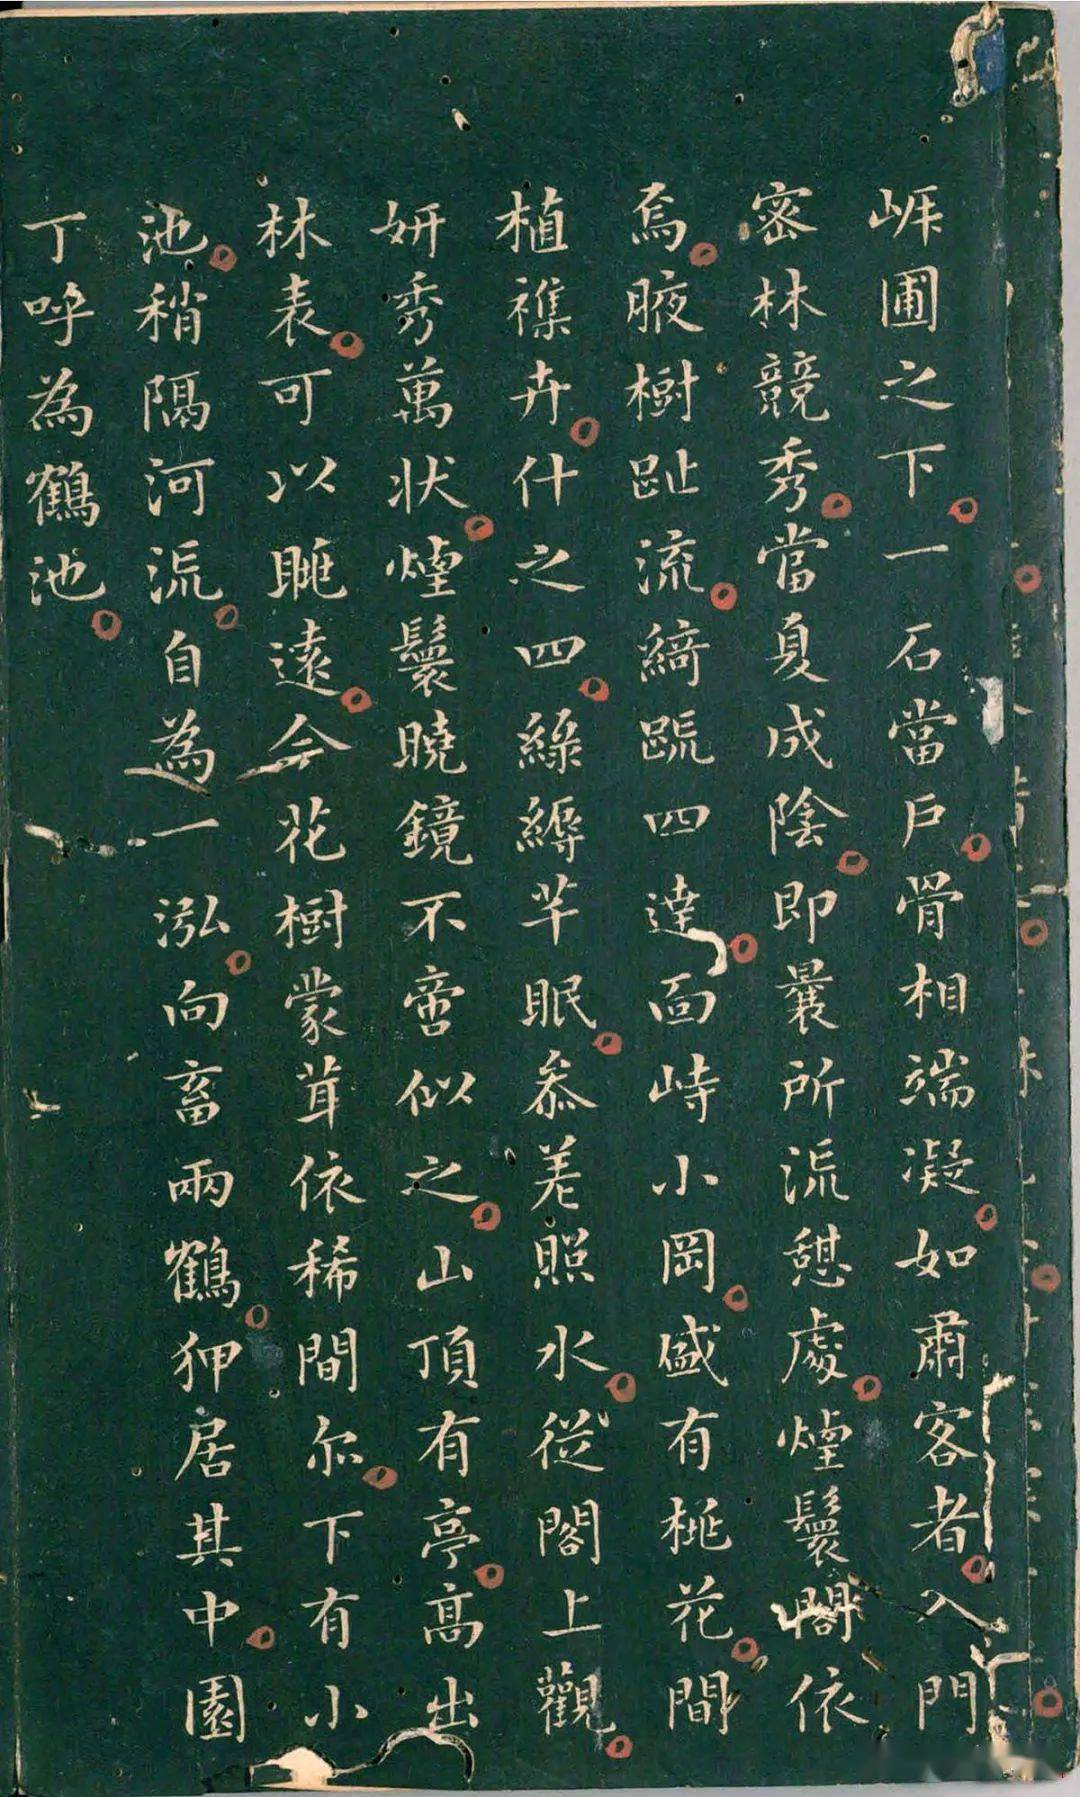 崕圃之下一石當戶骨相端凝如肅客者入門
密林競秀當夏成陰即曩所流憩處煙鬟閣依
焉腋樹趾流綺疏四達面峙小岡盛有桃花間
植襍卉什之四綠縟芊眠叅差照水從閣上觀
妍秀萬狀煙鬟曉鏡不啻似之山頂有亭高出
林表可以眺遠今花樹蒙茸依稀間尔下有小
池稍隔河流自為一泓向畜兩鶴狎居其中園
丁呼為鶴池